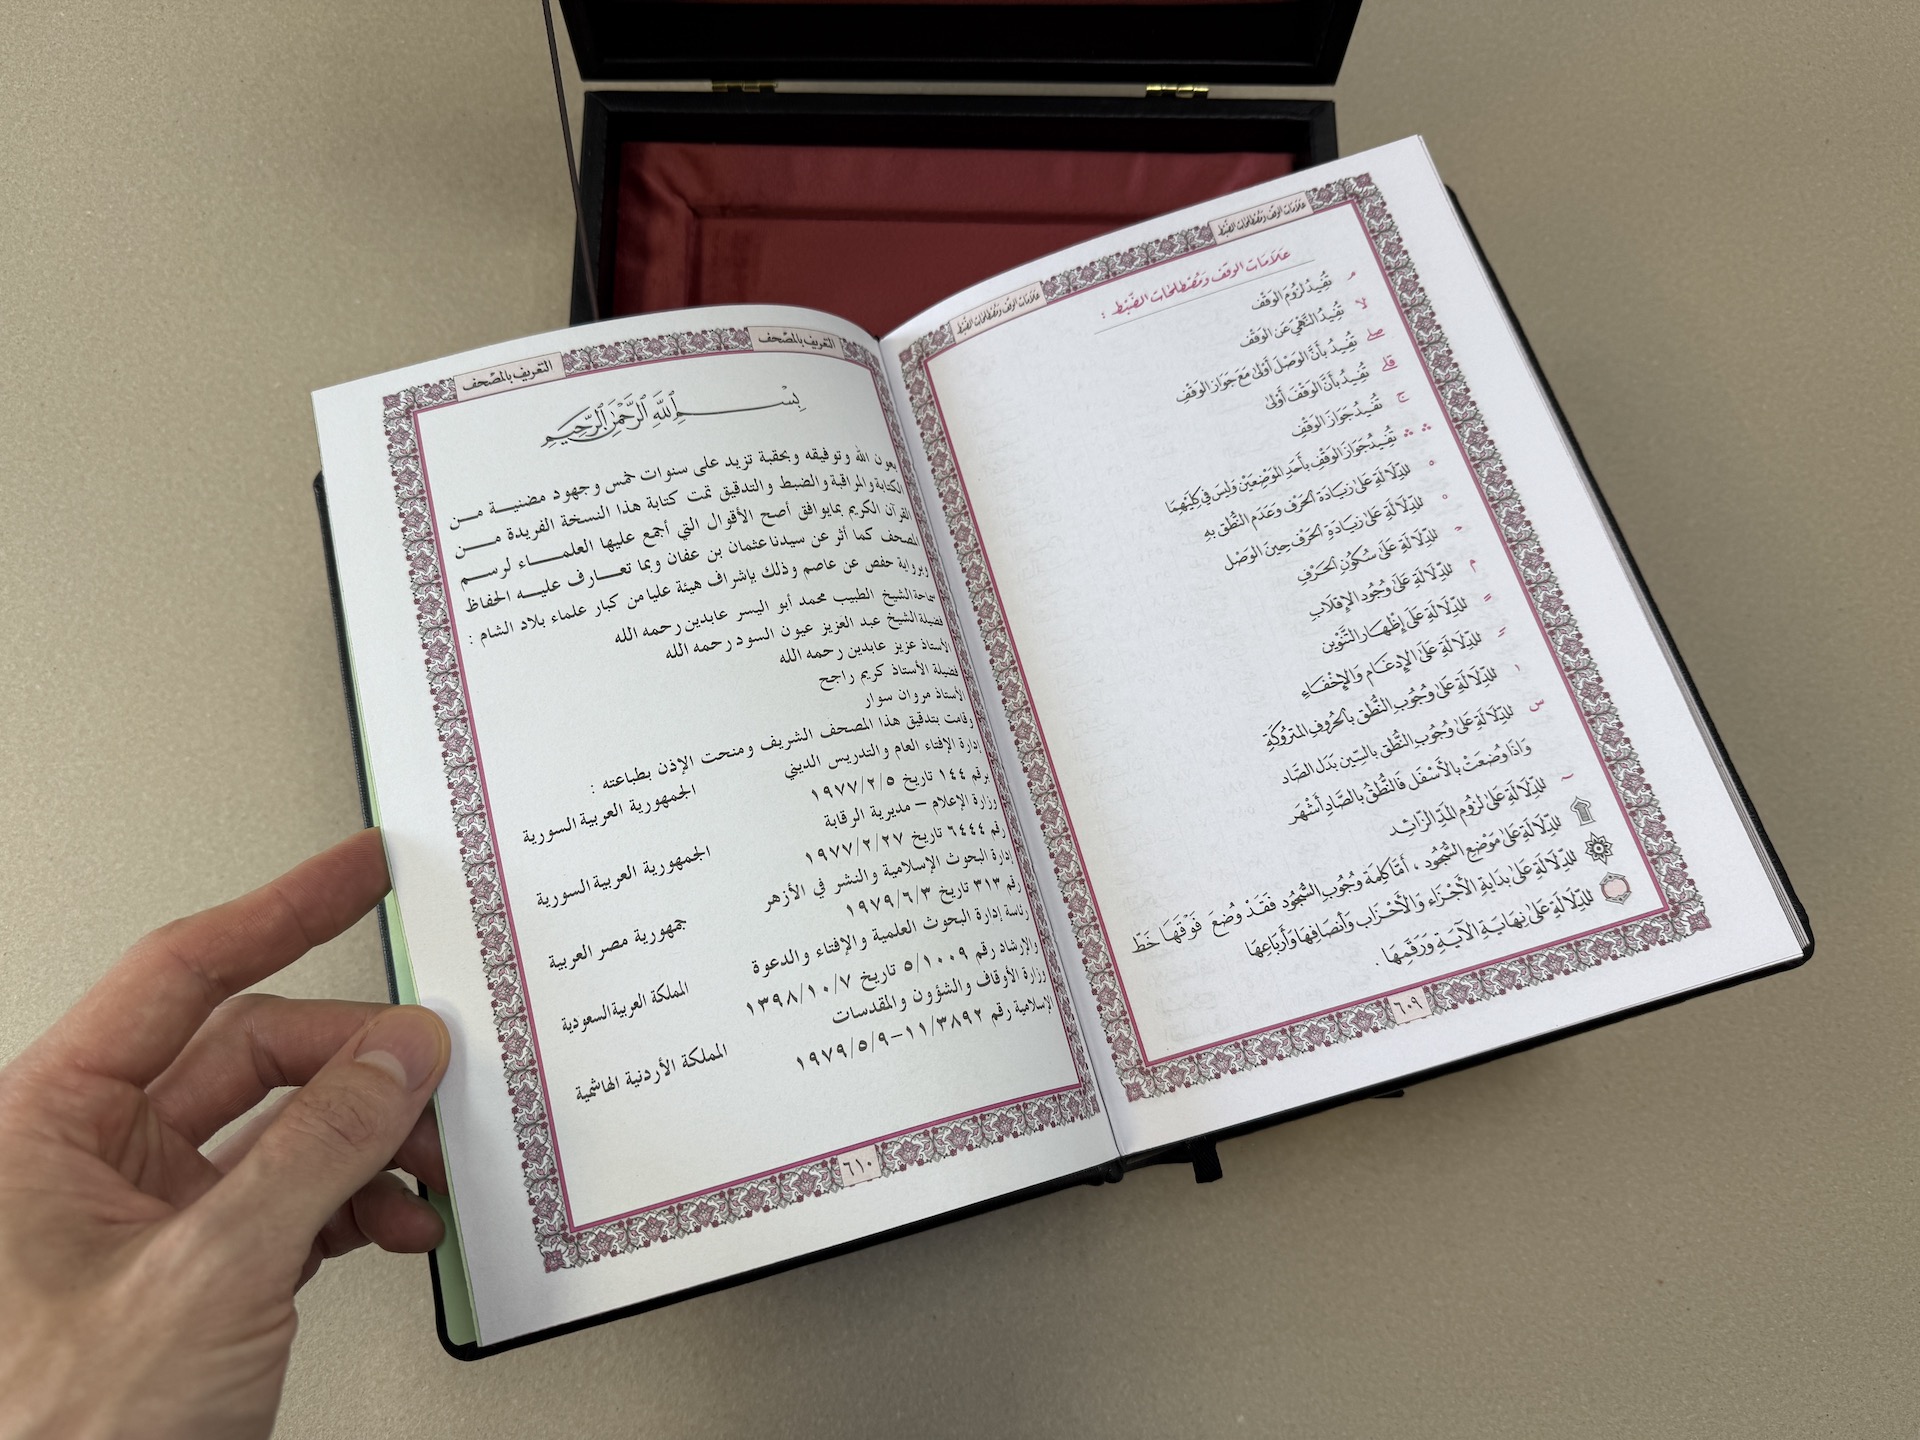 علامات الوقف ومصطلحات الضبط
علامات الوقف ومصطلحات الضبط
عَلَامَات الوَقف وَمُصْطَلحَات الضَّبْط :
مـ تُفِيدُ لزُومَ الوَقْف
لا تُفِيدُ النَّهْيَ عَن الوَقْف
صلى تُفِيدُ بأَنَّ الوَصْلَ أَوْلَىٰ مَعَ جَوَاز الوَقْفِ
قلى تُفِيدُ بأَنَّ الوَقْفَ أَوْلَىٰ
ج تُفِيدُ جَوَازَ الوَقْفِ
∴ ∴ تُفِيدُ جَوَازَ الوَقْفِ بأَحَدِ المَوْضِعَيْن وَليْسَ فِي كِلَيْهِمَا
للدِّلَالَةِ عَلىٰ زِيَادَةِ الحَرْف وَعَدَمِ النُّطْق بِهِ
للدِّلَالَةِ عَلىٰ زِيَادَةِ الحَرْف حِينَ الوَصْل
للدِّلَالَةِ عَلىٰ سُكُونِ الحَرْفِ
م للدِّلَالَةِ عَلىٰ وُجُودِ الإِقلَابِ
للدِّلَالَةِ عَلىٰ إِظهَارِ التَّنْوِين
للدِّلَالَةِ عَلىٰ الإِدغَام وَالإِخْفَاءِ
ا للدِّلَالَةِ عَلىٰ وُجُوبِ النُّطْق بالحُرُوفِ المَتْرُوكَةِ
س للدِّلَالَةِ عَلىٰ وُجُوبِ النُّطْق بالسِّين بَدَل الصَّاد
وَإذَا وُضعَتْ بالأَسْفَل فَالنُّطْقُ بالصَّادِ أَشْهَر
للدِّلَالَةِ عَلىٰ لزُوم المَدِّ الزَّائِد
للدِّلَالَةِ عَلىٰ مَوْضِع السُّجُود ، أَمَّا كَلِمَة وُجُوبِ السُّجُود فَقَدْ وُضعَ فَوْقَهَا خَطّ
للدِّلَالَةِ عَلىٰ بدَايَةِ الأَجْزَاء وَالأَحْزَاب وَأَنصَافِهَا وَأَربَاعِهَا
للدِّلَالَةِ عَلىٰ نِهَايَةِ الآيَةِ وَرَقمِهَا .
٦٠٩
التعريف بالمصحف
التعريف بالمصحف
بِسْمِ ٱللَّهِ ٱلرَّحْمَٰنِ ٱلرَّحِيمِ
بعون الله وتوفيقه وبحقبة تزيد على سنوات خمس وجهود مضنية من
الكتابة والمراقبة والضبط والتدقيق تمت كتابة هذا النسخة الفريدة من
القرآن الكريم بما يوافق أصح الأقوال التي أجمع عليها العلماء لرسم
المصحف كما أثر عن سيدنا عثمان بن عفان وبما تعارف عليه الحفاظ
وبرواية حفص عن عاصم وذلك بإشراف هيئة عليا من كبار علماء بلاد الشام :
سماحة الشيخ الطبيب محمد أبو اليسر عابدين رحمه الله
فضيلة الشيخ عبد العزيز عيون السود رحمه الله
الأستاذ عزيز عابدين رحمه الله
فضيلة الأستاذ كريم راجح
الأستاذ مروان سوار
وقامت بتدقيق هذا المصحف الشريف ومنحت الإذن بطباعته :
إدارة الإفتاء العام والتدريس الديني
برقم ١٤٤ تاريخ ١٩٧٧/٢/٥ الجمهورية العربية السورية
وزارة الإعلام – مديرية الرقابة
رقم ٦٤٤٤ تاريخ ١٩٧٧/٢/٢٧ الجمهورية العربية السورية
إدارة البحوث الإسلامية والنشر في الأزهر
رقم ٣١٣ تاريخ ١٩٧٩/٦/٣ جمهورية مصر العربية
رئاسة إدارة البحوث العلمية والإفتاء والدعوة
والإرشاد رقم ٥/١٠٠٩ تاريخ ١٣٩٨/١٠/٧ المملكة العربية السعودية
وزارة الأوقاف والشؤون والمقدسات
الإسلامية رقم ١١/٣٨٩٢–١٩٧٩/٥/٩ المملكة الأردنية الهاشمية
٦١٠